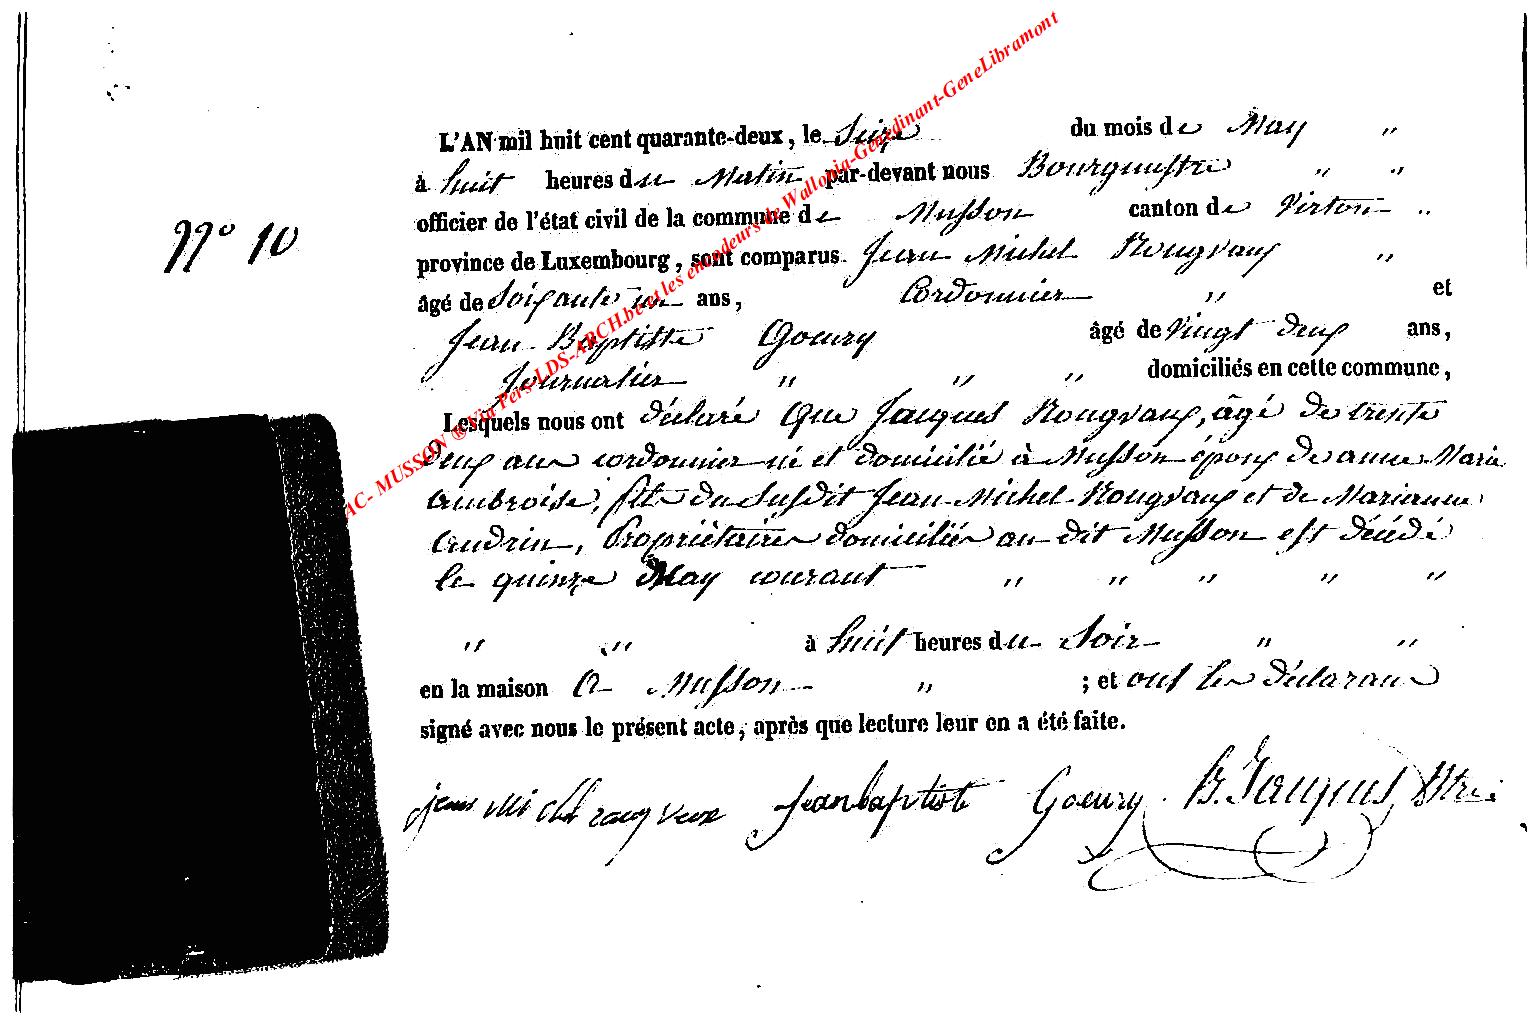 L'AN mil huit cent quarante-deux, le Seize du mois de May "
à huit heures du Matin par-devant nous Bourguestre " "
N° 10
officier de l'état civil de la commune de Musson canton de Virton "
province de Luxembourg, sont comparus Jean Michel Rougvaux "
âgé de Soixante un ans, Cordonnier " et
Jean Baptiste Goeury âgé de Vingt deux ans,
Journalier " " " domiciliés en cette commune,
Lesquels nous ont déclaré que Jacques Rougvaux, âgé de trente
deux ans cordonnier né et domicilié à Musson époux de anne Marie
Ambroise, fils du susdit Jean Michel Rougvaux et de Marianne
Andrin, Propriétaires domiciliés au dit Musson est décédé
le quinze May courant " " " " "
" " à huit heures du Soir " "
en la maison à Musson " ; et ont les déclarans
signé avec nous le présent acte, après que lecture leur en a été faite.
jean michel roug veux jean baptist Goeury B. Jacques
AC- MUSSON ® Via Pers-LDS-ARCH.be et les encodeurs de Wallonia-Genedinant-GeneLibramont